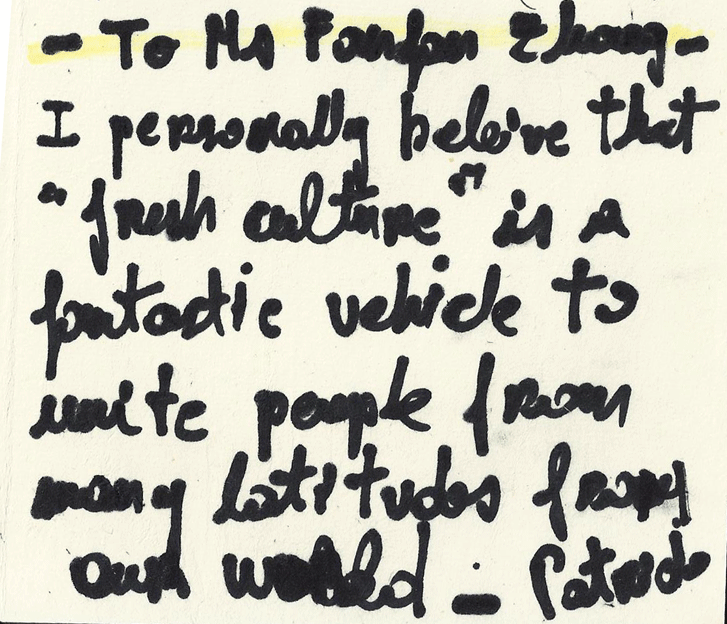 - To Ms Fanfan Zhang -
I personally beleive that
"fresh culture" is a
fantastic vehicle to
unite people from
many latitudes from
our world _ Patrick